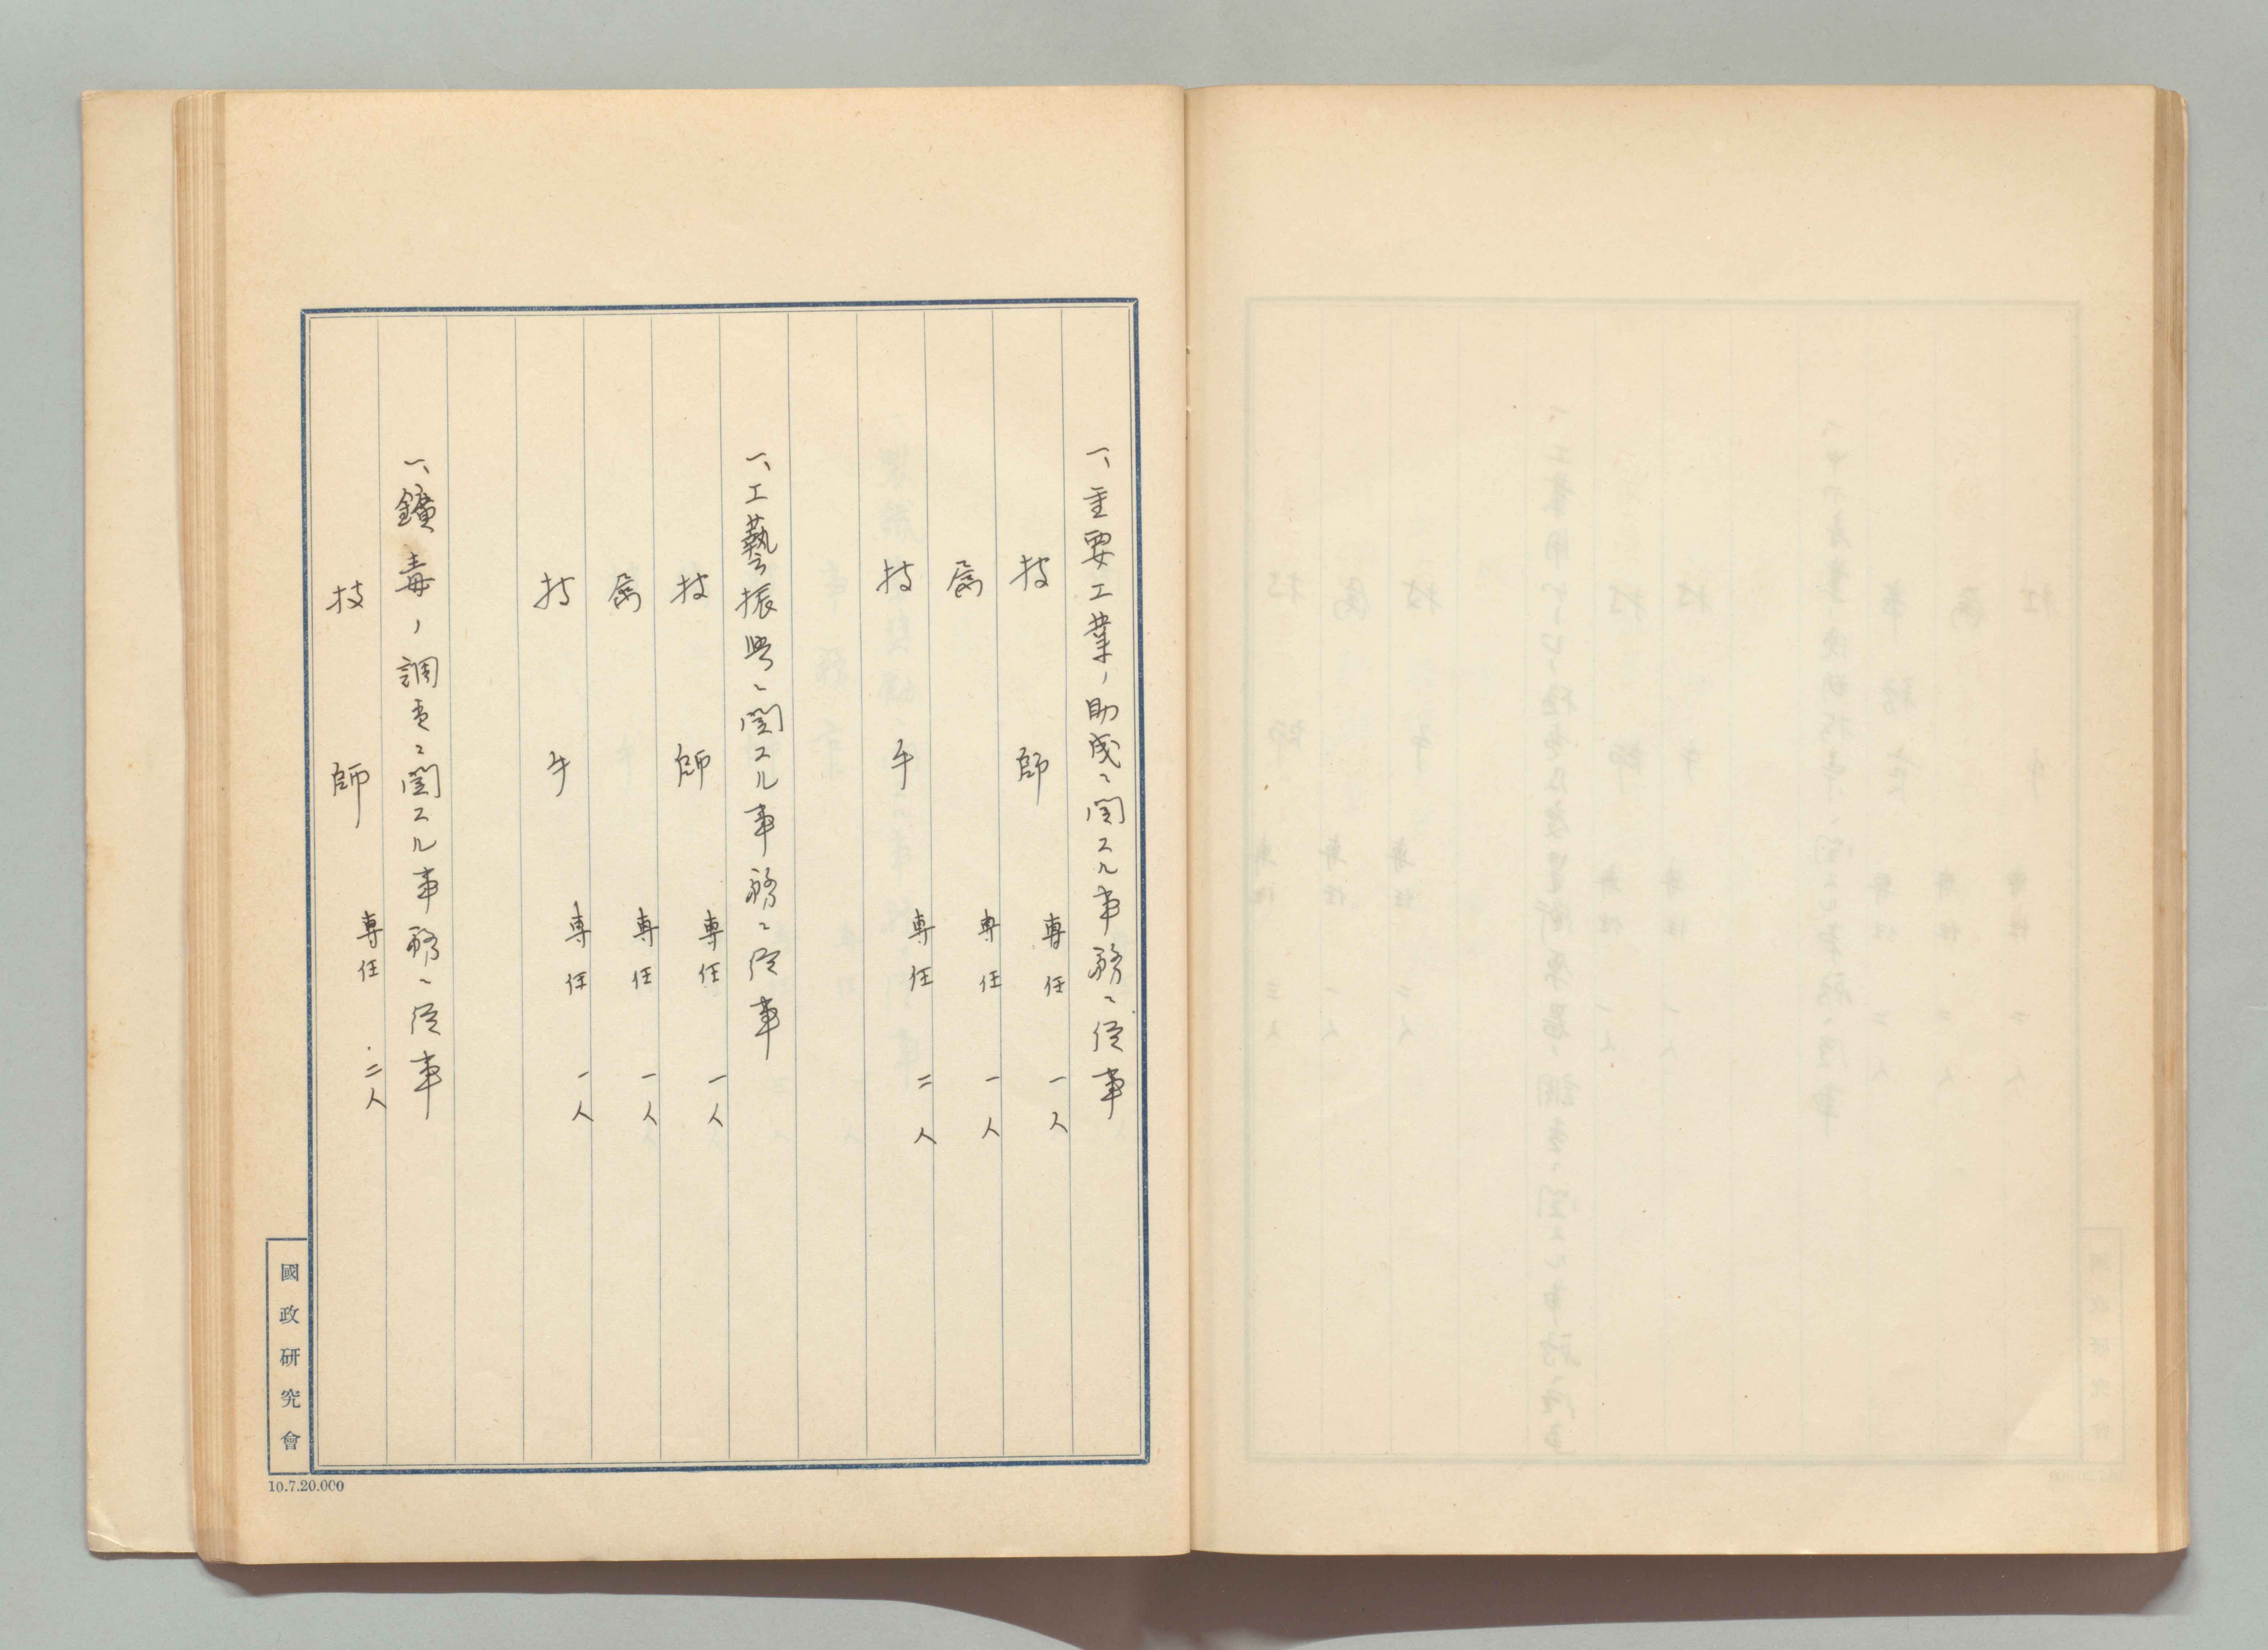 一、重要工業ノ助成ニ関スル事務ニ従事
技師 専任 一人
属 専任 一人
技手 専任 二人
一、工藝振興ニ関スル事務ニ従事
技師 専任 一人
属 専任 一人
技手 専任 一人
一、鑛毒ノ調査ニ関スル事務ニ従事
技師 専任 二人
國政研究會
10.7.20.000